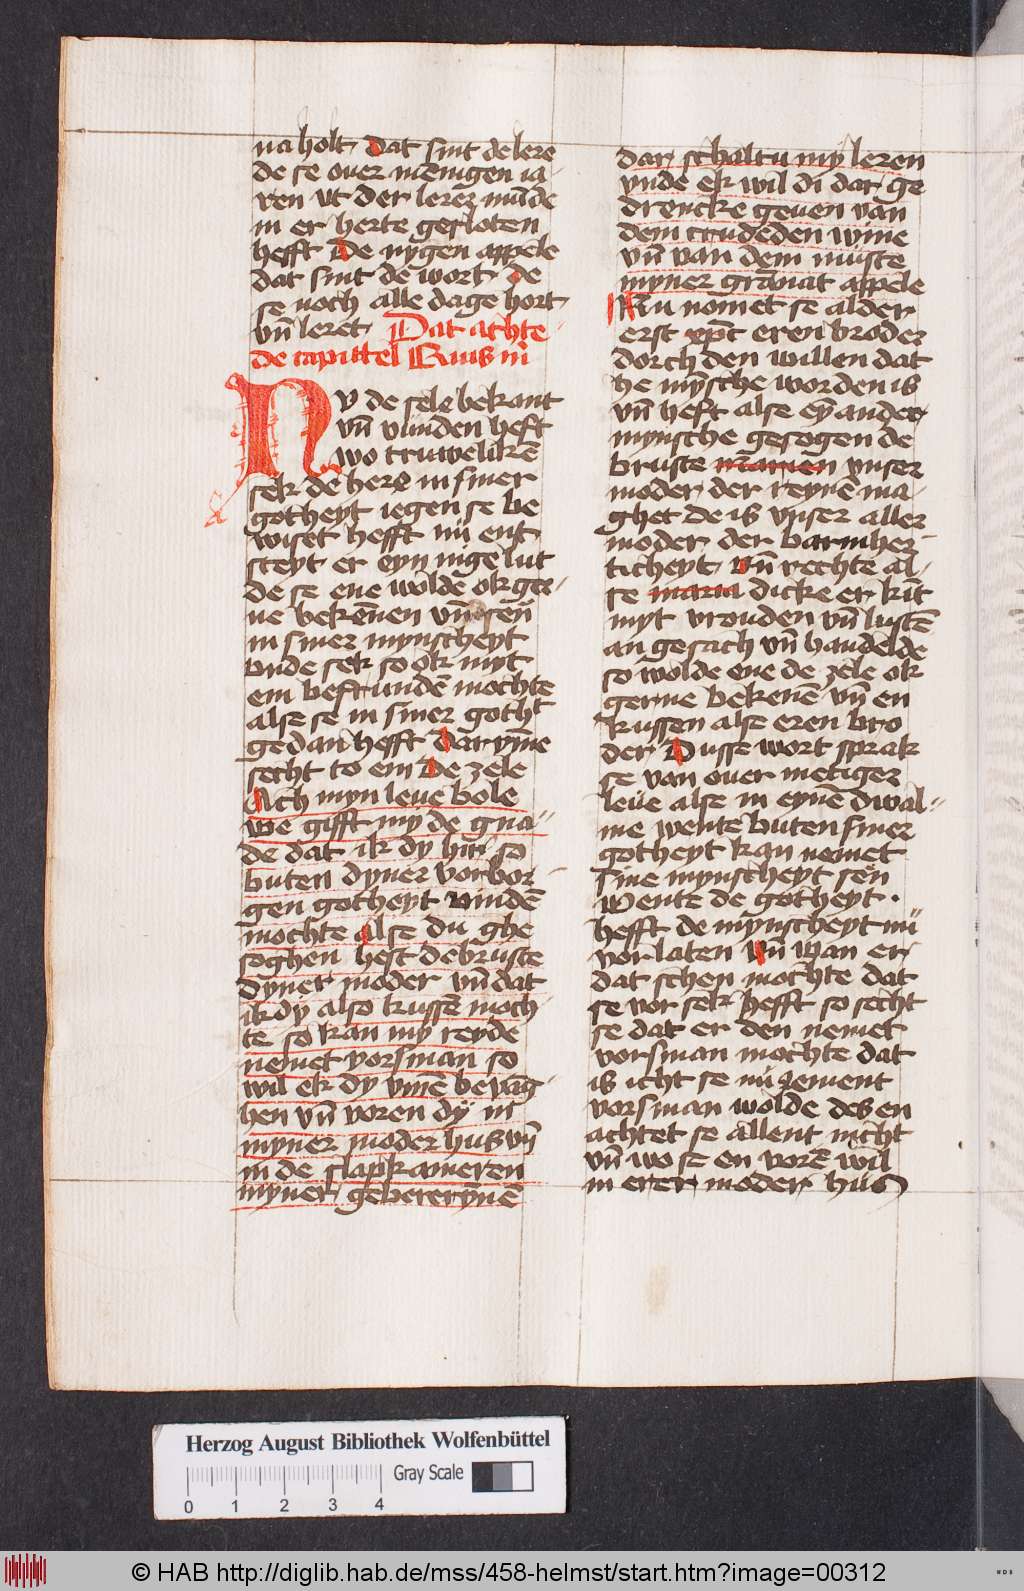 na holt dat sint de lere
de se ouer menigen ia
ren vt der lerer mūde
in er herte gesloten
hefft De nygen appele
dat sint de wort de
se noch alle dage hort
vn̄ leret Dat achte
de capittel Quis m̄
Nv de sele bekant
vn̄ vunden heft
wo truweliken̄
sek de here in siner
gotheyt iegen se be
wiset hefft nu ent
steyt er eyn nige lut
de se ene wolde ok ger
ne bekēnen vn̄
in siner mynscheyt
vnde sek so ok myt
em befrunden̄ mochte
alse se in siner gotht
gedan hefft dar vm̄e
secht to em De zele
Ach myn leue bole
we gifft my de gna
de dat ik dy hir so
buten dyner vorbor
gen gotheyt vinden̄
mochte alse du ghe
soghen hefst de bruste
dyner moder vn̄ dat
ik dy also kussen̄ moch
te so kan my reyde
nemet vorsman so
wil ek dy vm̄e bevāg
hen vn̄ voren dy in
myner moder hus vn̄
in de slapkameren
myner gebererynne̅
dar schaltu my leren
vnde ek wil di dar ge
drencke geuen van
dem crudeden wine
vn̄ van dem muste
myner granat appele
Nu nomet se alder
erst xp̄c eren broder
dorch den willen dat
he mȳsche worden is
vn̄ heft alse eȳ ander
mynsche gesogen de
bruste marien vnser
moder der reynē ma
ghet de is vnser aller
moder der barmher
ticheyt vn̄ rechte al
se maria dicke er kīt
myt vrouden vn̄ lustē
an gesach vn̄ handelde
so wolde ene de zele ok
gerne bekenē vn̄ en
kussen alse eren bro
der Dusse wort sprak
se van ouer
leue alse in eynē dwal
me wente buten siner
gotheyt kan nemet
sine mynscheyt sen
wente de gotheyt
hefft de mynscheyt nu
vorlaten vn̄ wan er
dat schen mochte dat
se vor sek hefft so secht
se dat er den nemet
vorsman mochte dat
is icht se nu iement
vorsman wolde des en
achtet se allent nicht
vn̄ wo se en vorē wil
in erer moder hus
Herzog August Bibliothek Wolfenbüttel
Gray Scale
0 1 2 3 4
© HAB http://diglib.hab.de/mss/458-helmst/start.htm?image=00312